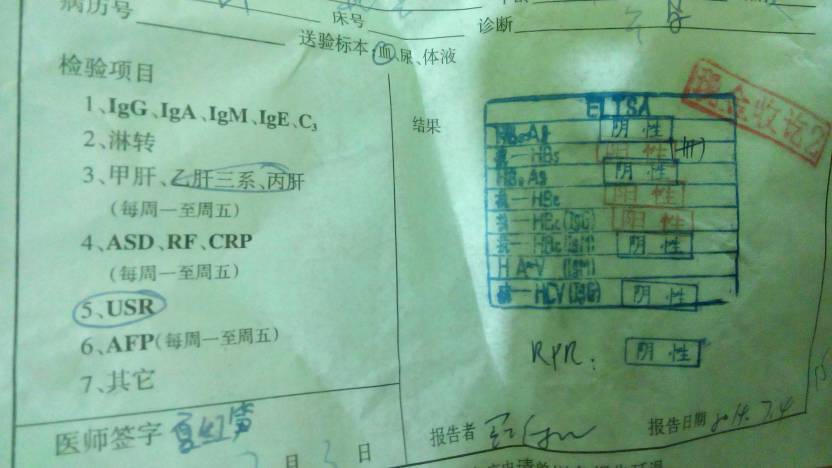 病历号
床号
诊断
送验标本:血、尿、体液
检验项目
1、IgG、IgA、IgM、IgE、C3
2、淋转
3、甲肝、乙肝三系、丙肝
(每周一至周五)
4、ASD、RF、CRP
(每周一至周五)
5、USR
6、AFP(每周一至周五)
7、其它
医师签字
月 3 日
现金收讫2
结果
ELISA
HBsAg 阴性
抗—HBs 阳性 (卅)
HBeAg 阴性
抗—HBe 阳性
抗—HBc(IgG) 阳性
抗—HBc(IgM) 阴性
HAV (IgM)
抗—HCV(IgG) 阴性
RPR: 阴性
报告者
报告日期 2014.7.4